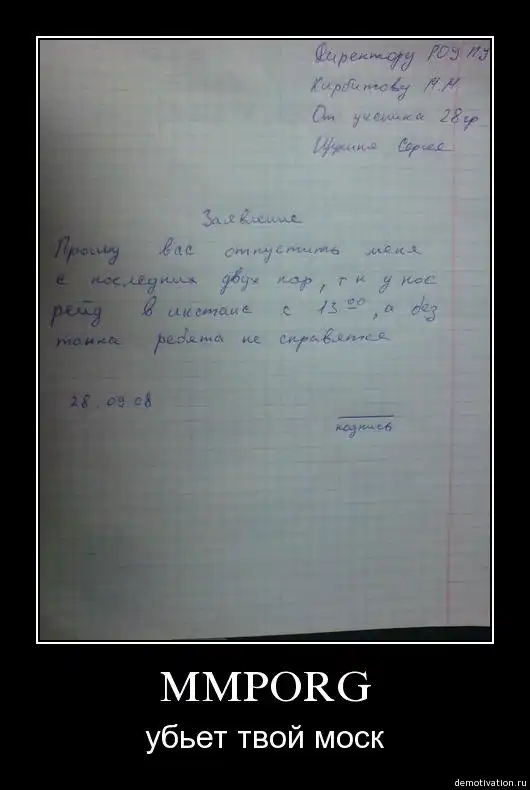 Директору РОУ ПУ
Кирбитову Н.Н
От ученика 28 гр
Щукина Сергея
Заявление
Прошу вас отпустить меня
с последних двух пар, т к у нас
рейд в инстанс с 13 00, а без
танка ребята не справятся
28.09.08
подпись
MMPORG
убьет твой моск
demotivation.ru